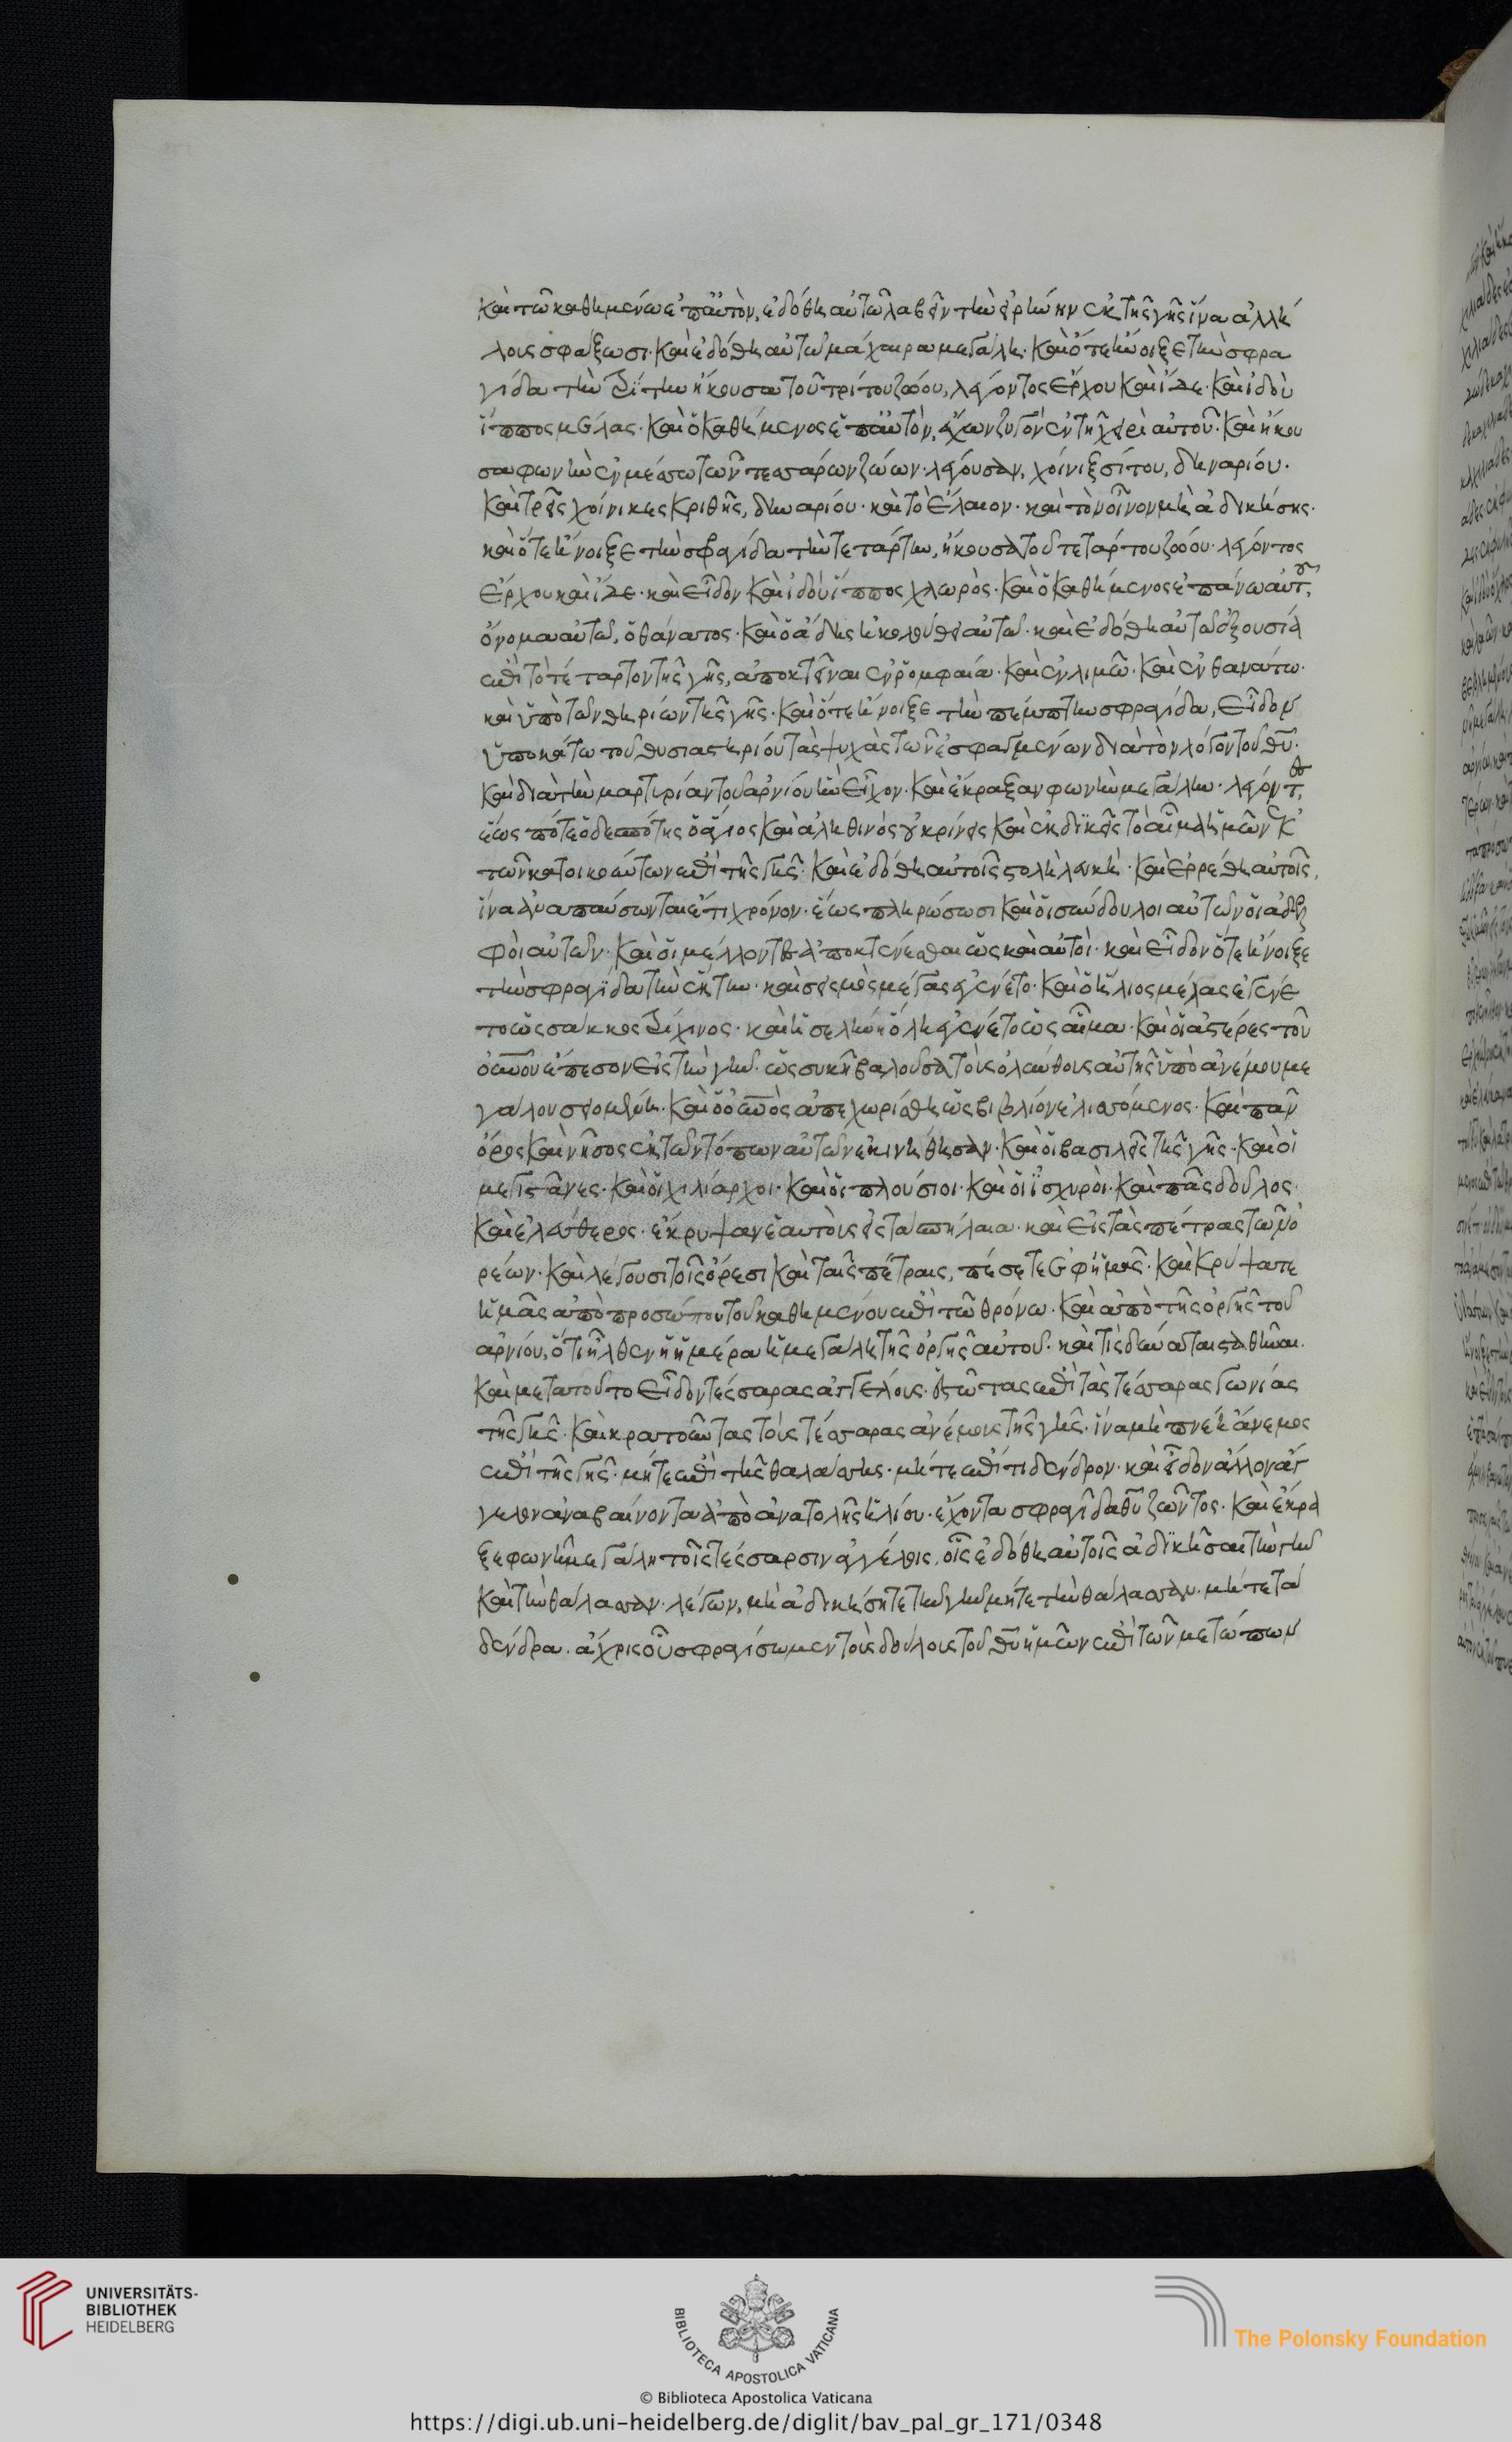 καὶ τῶ καθημένω ἐπ' αὐτὸν, ἐδόθη αὐτῶ λαβεῖν τὴν εἰρήνην ἐκ τῆς γῆς ἵνα ἀλλή
λους σφάξωσι· καὶ ἐδόθη αὐτῶ μάχαιρα μεγάλη· καὶ ὅτε ἤνοιξε τὴν σφρα
γίδα τὴν τρίτην ἤκουσα τοῦ τρίτου ζώου, λέγοντος ἔρχου καὶ ἴδε· καὶ ἰδοὺ
ἵππος μέλας· καὶ ὁ καθήμενος ἐπ' αὐτὸν, ἔχων ζυγὸν ἐν τῇ χειρὶ αὐτοῦ· καὶ ἤκου
σα φωνὴν ἐν μέσω τῶν τεσσάρων ζώων· λέγουσαν, χοίνιξ σίτου, δηναρίου·
καὶ τρεῖς χοίνικες κριθῆς, δηναρίου· καὶ τὸ ἔλαιον· καὶ τὸν οἶνον μὴ ἀδικήσης·
καὶ ὅτε ἤνοιξε τὴν σφραγίδα τὴν τετάρτην, ἤκουσα τοῦ τετάρτου ζώου· λέγοντος
ἔρχου καὶ ἴδε· καὶ εἶδον καὶ ἰδοὺ ἵππος χλωρὸς· καὶ ὁ καθήμενος ἐπάνω αὐτοῦ,
ὄνομα αὐτῶ, ὁ θάνατος· καὶ ὁ ἅδης ἠκολούθει αὐτῶ· καὶ ἐδόθη αὐτῶ ἐξουσία
ἐπὶ τὸ τέταρτον τῆς γῆς, ἀποκτεῖναι ἐν ῥομφαία· καὶ ἐν λιμῶ· καὶ ἐν θανάτω·
καὶ ὑπὸ τῶν θηρίων τῆς γῆς· καὶ ὅτε ἤνοιξε τὴν πέμπτην σφραγίδα, εἶδον
ὑποκάτω τοῦ θυσιαστηρίου τὰς ψυχὰς τῶν ἐσφαγμένων διὰ τὸν λόγον τοῦ θυ·
καὶ διὰ τὴν μαρτυρίαν τοῦ ἀρνίου ἣν εἶχον· καὶ ἔκραξαν φωνὴν μεγάλην· λέγοντ,
ἕως πότε ὁ δεσπότης ὁ ἅγιος καὶ ἀληθινὸς οὐ κρίνεις καὶ ἐκδϊκεῖς τὸ αἷμα ἡμῶν ἐκ
τῶν κατοικούντων ἐπὶ τῆς γῆς· καὶ ἐδόθη αὐτοῖς στολὴ λευκὴ· καὶ ἐρρέθη αὐτοῖς,
ἵνα ἀναπαύσωνται ἔτι χρόνον· ἕως πληρώσωσι καὶ οἱ σύνδουλοι αὐτῶν οἱ ἀδελ
φοὶ αὐτῶν· καὶ οἱ μέλλοντες ἀποκτένεσθαι ὡς καὶ αὐτοὶ· καὶ εἶδον ὅτε ἤνοιξε
τὴν σφραγῖδα τὴν ἕκτην· καὶ σεισμὸς μέγας ἐγένετο· καὶ ὁ ἥλιος μέλας ἐγένε
το ὡς σάκκος τρίχινος· καὶ ἡ σελήνη ὅλη ἐγένετο ὡς αἷμα· καὶ οἱ ἀστέρες τοῦ
οὐνοῦ ἔπεσον εἰς τὴν γῆν· ὡς συκῆ βαλοῦσα τοὺς ὀλύνθους αὐτῆς ὑπὸ ἀνέμου με
γάλου σειομένη· καὶ ὁ οὐνὸς ἀπεχωρίσθη ὡς βιβλίον ἑλισσόμενος· καὶ πᾶν
ὄρος καὶ νῆσος ἐκ τῶν τόπων αὐτῶν ἐκινήθησαν· καὶ οἱ βασιλεῖς τῆς γῆς· καὶ οἱ
μεγιστᾶνες· καὶ οἱ χιλιάρχοι· καὶ οἱ πλούσιοι· καὶ οἱ ἰσχυροὶ· καὶ πᾶς δοῦλος·
καὶ ἐλεύθερος· ἔκρυψαν ἑαυτοὺς εἰς τὰ σπήλαια· καὶ εἰς τὰς πέτρας τῶν ὀ
ρέων· καὶ λέγουσι τοῖς ὄρεσι καὶ ταῖς πέτραις, πέσετε ἐφ' ἡμᾶς· καὶ κρύψατε
ἡμᾶς ἀπὸ προσώπου τοῦ καθημένου ἐπὶ τῶ θρόνω· καὶ ἀπὸ τῆς ὀργῆς τοῦ
ἀρνίου, ὅτι ἦλθεν ἡ ἡμέρα ἡ μεγάλη τῆς ὀργῆς αὐτοῦ· καὶ τίς δύναται σταθῆναι·
καὶ μετὰ τοῦτο εἶδον τέσσαρας ἀγγέλους· ἑστῶτας ἐπὶ τὰς τέσσαρας γωνίας
τῆς γῆς· καὶ κρατοῦντας τοὺς τέσσαρας ἀνέμους τῆς γῆς· ἵνα μὴ πνέη ἄνεμος
ἐπὶ τῆς γῆς· μήτε ἐπὶ τῆς θαλάσσης· μήτε ἐπί τι δένδρον· καὶ εἶδον ἄλλον ἄγ
γελον ἀναβαίνοντα ἀπὸ ἀνατολῆς ἡλίου· ἔχοντα σφραγῖδα θυ ζῶντος· καὶ ἔκρα
ξε φωνῆ μεγάλη τοῖς τέσσαρσιν ἀγγέλοις, οἷς ἐδόθη αὐτοῖς ἀδϊκῆσαι τὴν γῆν
καὶ τὴν θάλασσαν· λέγων, μὴ ἀδικήσητε τὴν γῆν μήτε τὴν θάλασσαν· μήτε τὰ
δένδρα· ἄχρις οὗ σφραγίσωμεν τοὺς δούλους τοῦ θυ ἡμῶν ἐπὶ τῶν μετώπων
UNIVERSITÄTS-
BIBLIOTHEK
HEIDELBERG
BIBLIOTECA APOSTOLICA VATICANA
The Polonsky Foundation
© Biblioteca Apostolica Vaticana
https://digi.ub.uni-heidelberg.de/diglit/bav_pal_gr_171/0348